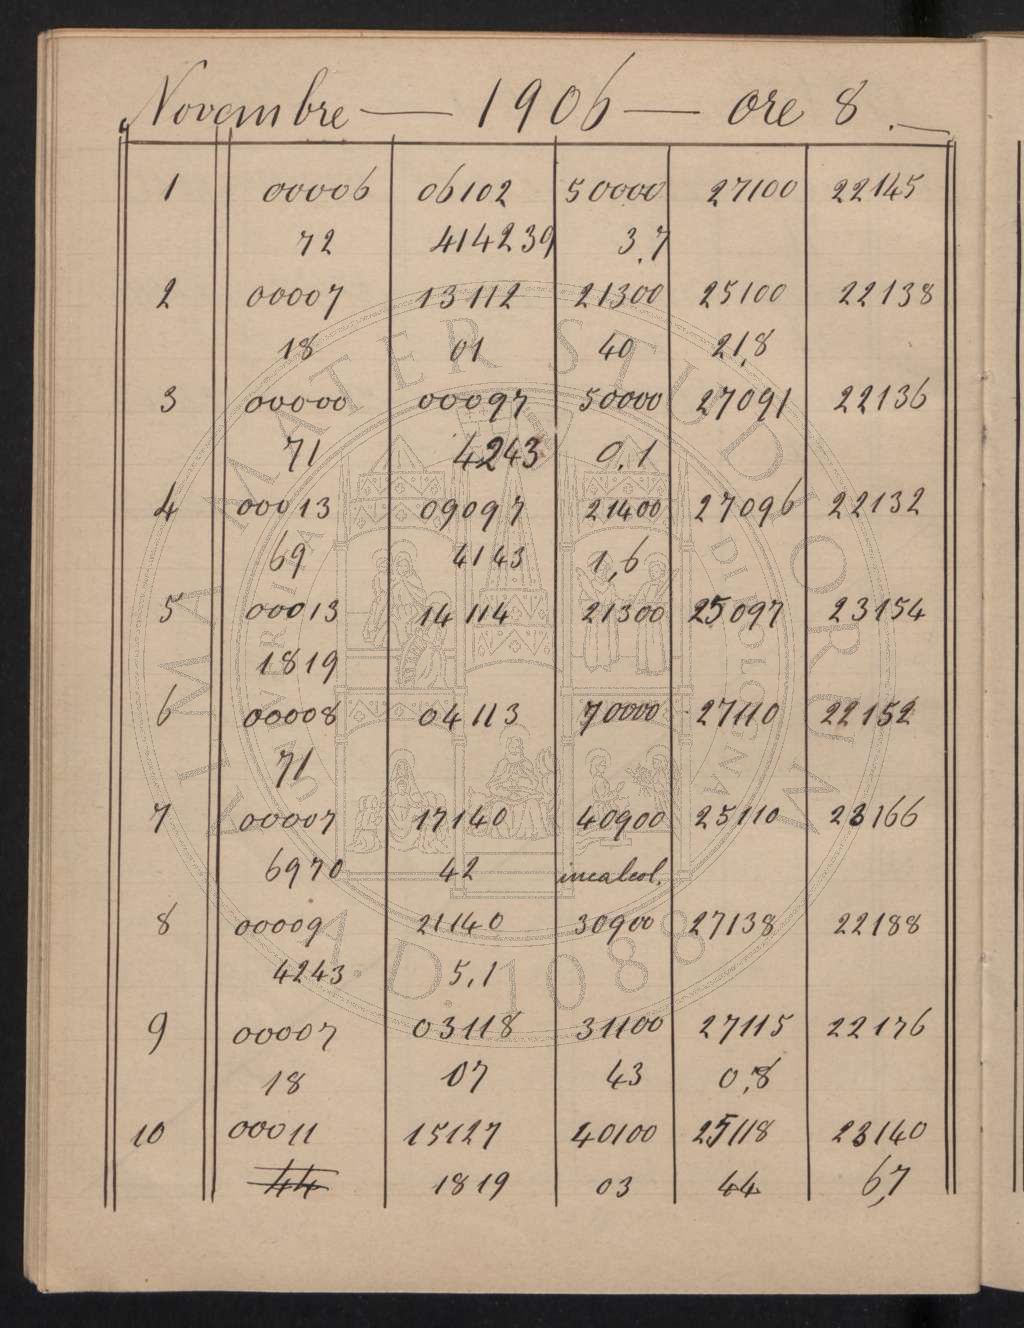 Novembre — 1906 — ore 8.
1 00006 06102 50000 27100 22145
72 414239 3,7
2 00007 13112 21300 25100 22138
18 01 40 21,8
3 00000 00097 50000 27091 22136
71 4243 0,1
4 00013 09097 21400 27096 22132
69 4143 1,6
5 00013 14114 21300 25097 23154
1819
6 00008 04113 70000 27110 22152
71
7 00007 17140 40900 25110 23166
6970 42 incalcol.
8 00009 21140 30900 27138 22188
4243 5,1
9 00007 03118 31100 27115 22176
18 07 43 0,8
10 00011 15127 40100 25118 23140
44 1819 03 44 6,7
ALMA MATER STUDIORUM
A.D. 1088
UNIVERSITÀ DI BOLOGNA